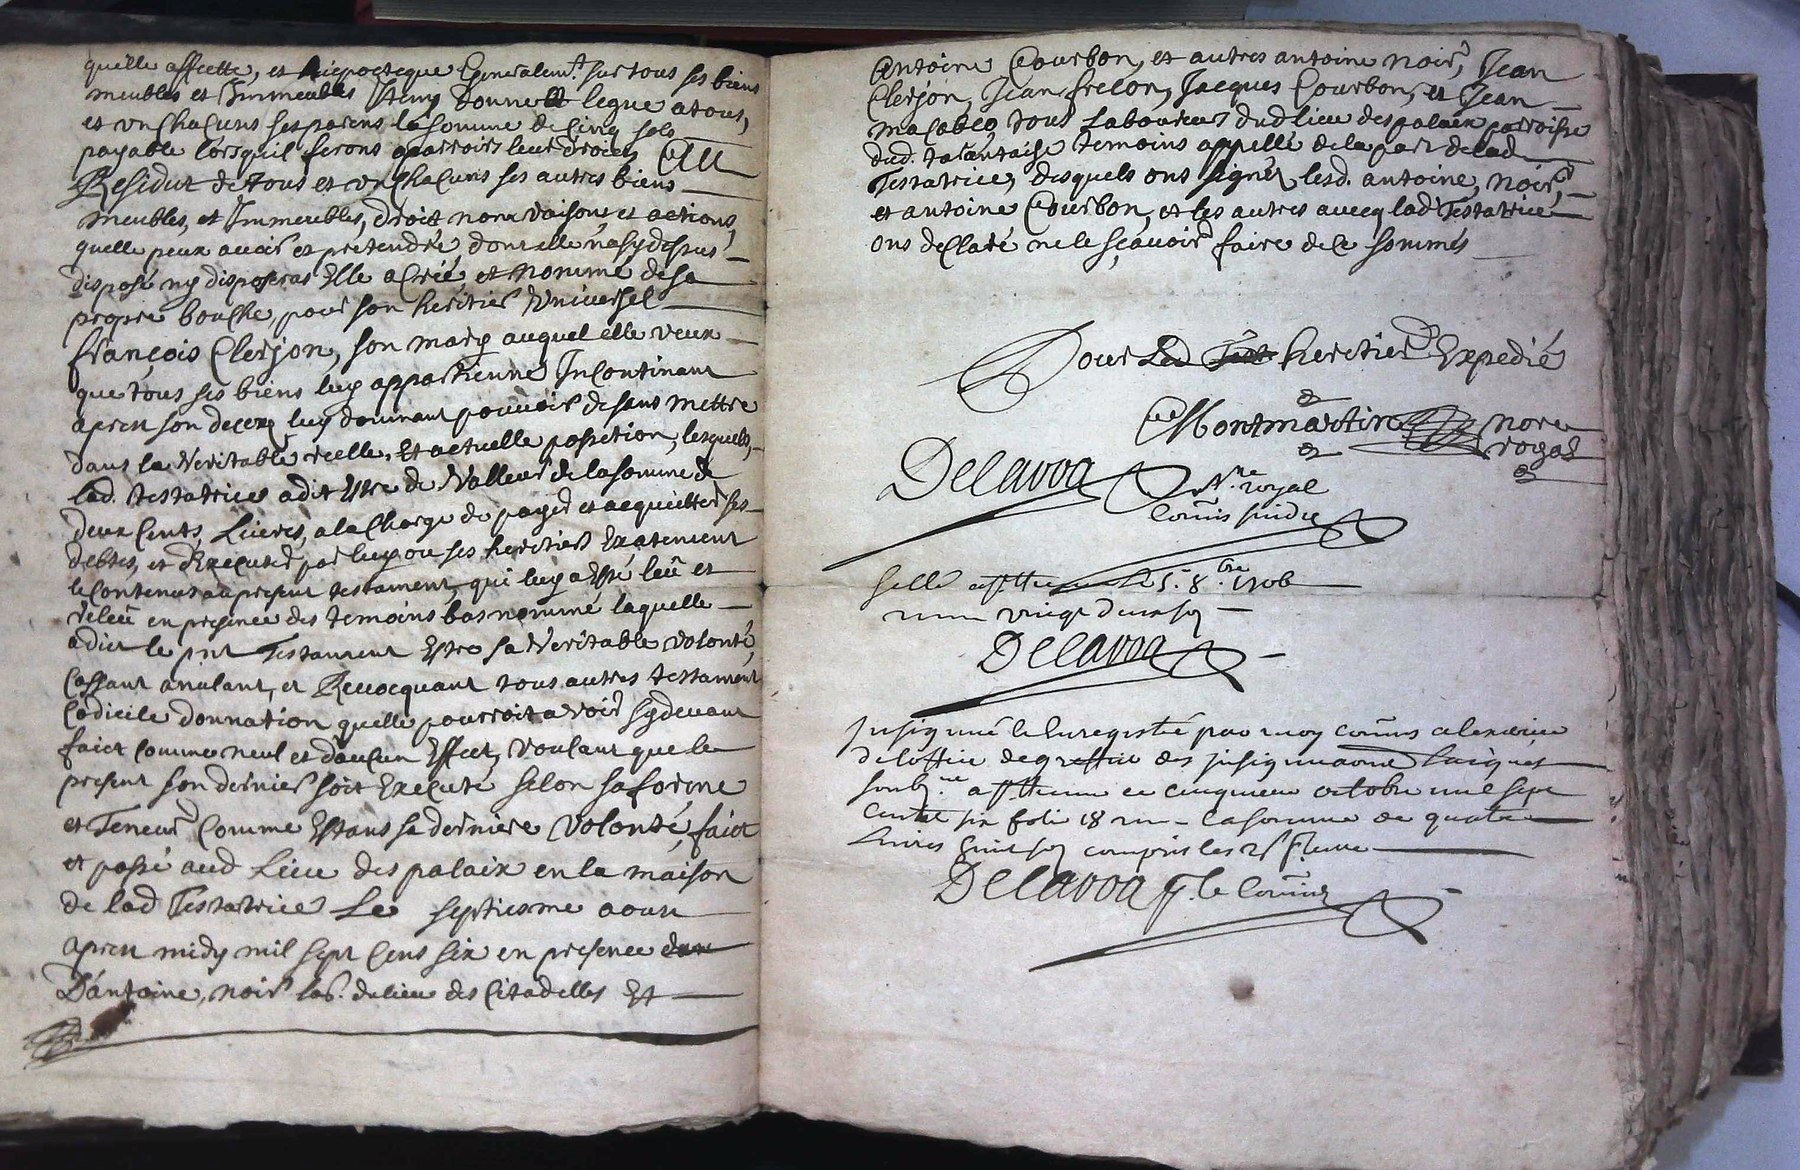 quelle affectte, et hiepocteque Generalemt. sur tous ses biens
meubles et Immeubles Item donne et legue a tous,
et un Chacuns ses parens la somme de Cinq sols
payable lorsquil feront aparroir leur droict, Et Au
Residut de tous et un Chacuns ses autres biens
meubles, et Immeubles, droict noms raisons et actions,
quelle peux avoir et pretendre dont elle na sy dessus
disposé ny disposeras Elle a Creé et nommé de sa
propre bouche, pour son heritier Universel
françois Clerjon, son mary auquel elle veux
que tous ses biens luy appartienne Incontinant
apres son deceds luy donnant pouvoir de sans mettre
dans la Veritable reelle, Et actuelle possetion, lesquels,
lad. testatrice a dit Estre de Valleur de la somme de
deux Cents, Livres, a la Charge de payer et acquitter ses
debtes, et Executer par luy ou ses heritiers Exatement
le Contenus au present testament, qui luy a Esté leü et
releü en presence des temoins bas nommé laquelle
a dict le pnt Testament Estre sa Veritable volonté,
Cassant anulant, et Revocquant tous autres testament
Codicile donnation quelle pourroit avoir sy devant
faict Comme neul et d'aucun Effect, voulant que le
present son dernier soit Executé selon sa forme
et Teneur Comme Estant sa derniere Volonté, faict
et passé aud Lieu des palaix en la maison
de lad Testatrice Le septiesme aoust
apres midy mil sept Cens six en presence
D'antoine, noir lab. du lieu des Citadelles Et
Antoine Courbon, et autres antoine noir, Jean
Clerjon, Jean frelon, Jacques Courbon, et Jean
macabeo, tous Laboureurs dud lieu des palaix parroisse
dud. tarantaise temoins appellé de la part de lad
Testatrice, desquels ons signéz lesd. antoine, noir,
et antoine Courbon, et les autres avecq lad Testatrice
ons declaré ne le sçavoir faire de ce sommés
Pour Led heritier Expedié
Montmartin nore
royal
Delavoa Nre. royal
Comis sindic
Sellé a st Etienne Le 5. 8.bre 1706
vingt deux s
Delavoa
Insignué et Enregistré par moy comis a lexercice
de loffice de greffier des insignuaons laicques
soub.né a st Etienne ce cinquieme octobre mil sept
cent six folio 18 la somme de quatre
Livres huit s compris les
Delavoa p. le Comis